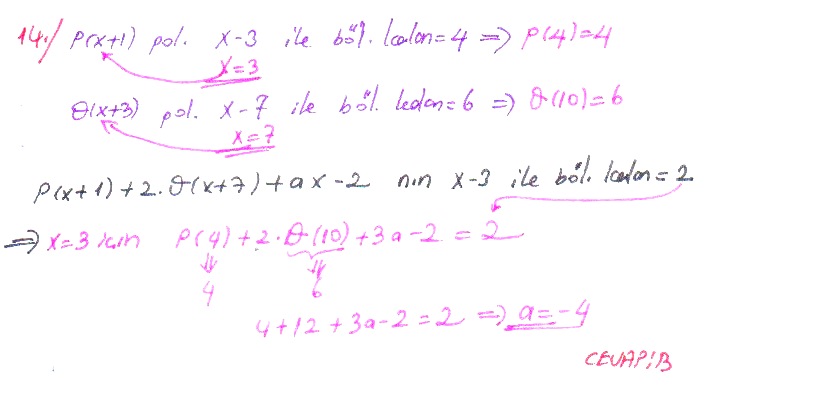 14./ P(x+1) pol. x-3 ile böl. kalan=4 ⇒ P(4)=4
x=3
Q(x+3) pol. x-7 ile böl. kalan=6 ⇒ Q(10)=6
x=7
P(x+1)+2.Q(x+7)+ax-2 nın x-3 ile böl. kalan=2
⇒ x=3 için P(4)+2.Q(10)+3a-2=2
⇓ ⇓
4 6
4+12+3a-2=2 ⇒ a=-4
CEVAP:B